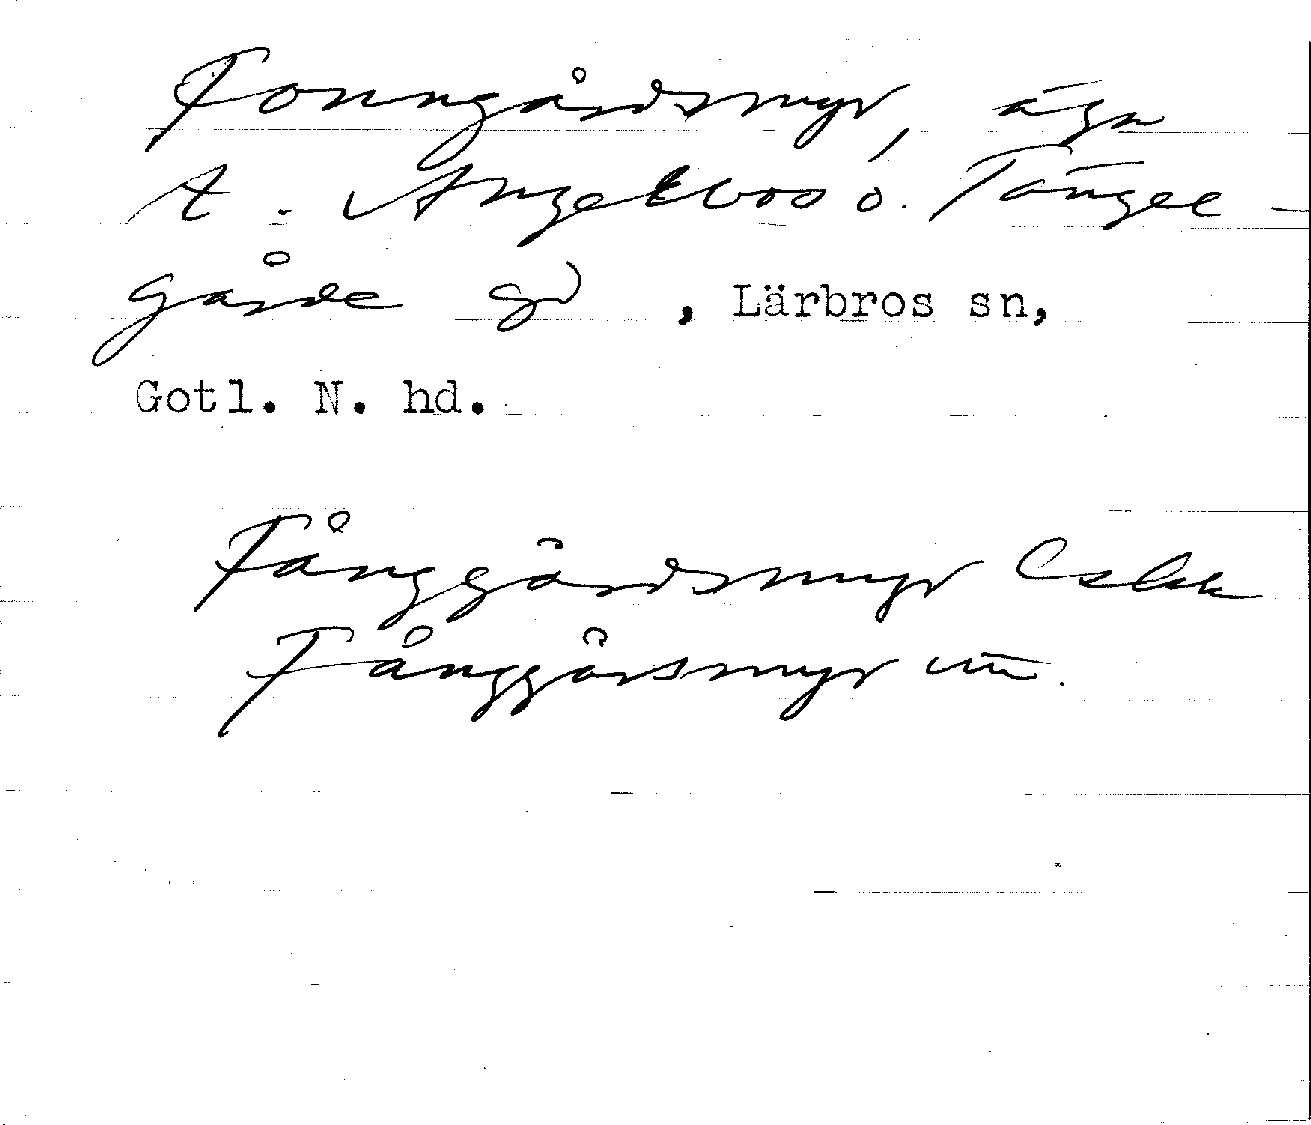 Fonngårdsmyr, äga
t. Angelbos o. Tängel-
gårde gd , Lärbros sn,
Gotl. N. hd.
Fånggårdsmyr Eskk
Fånggårsmyr un.